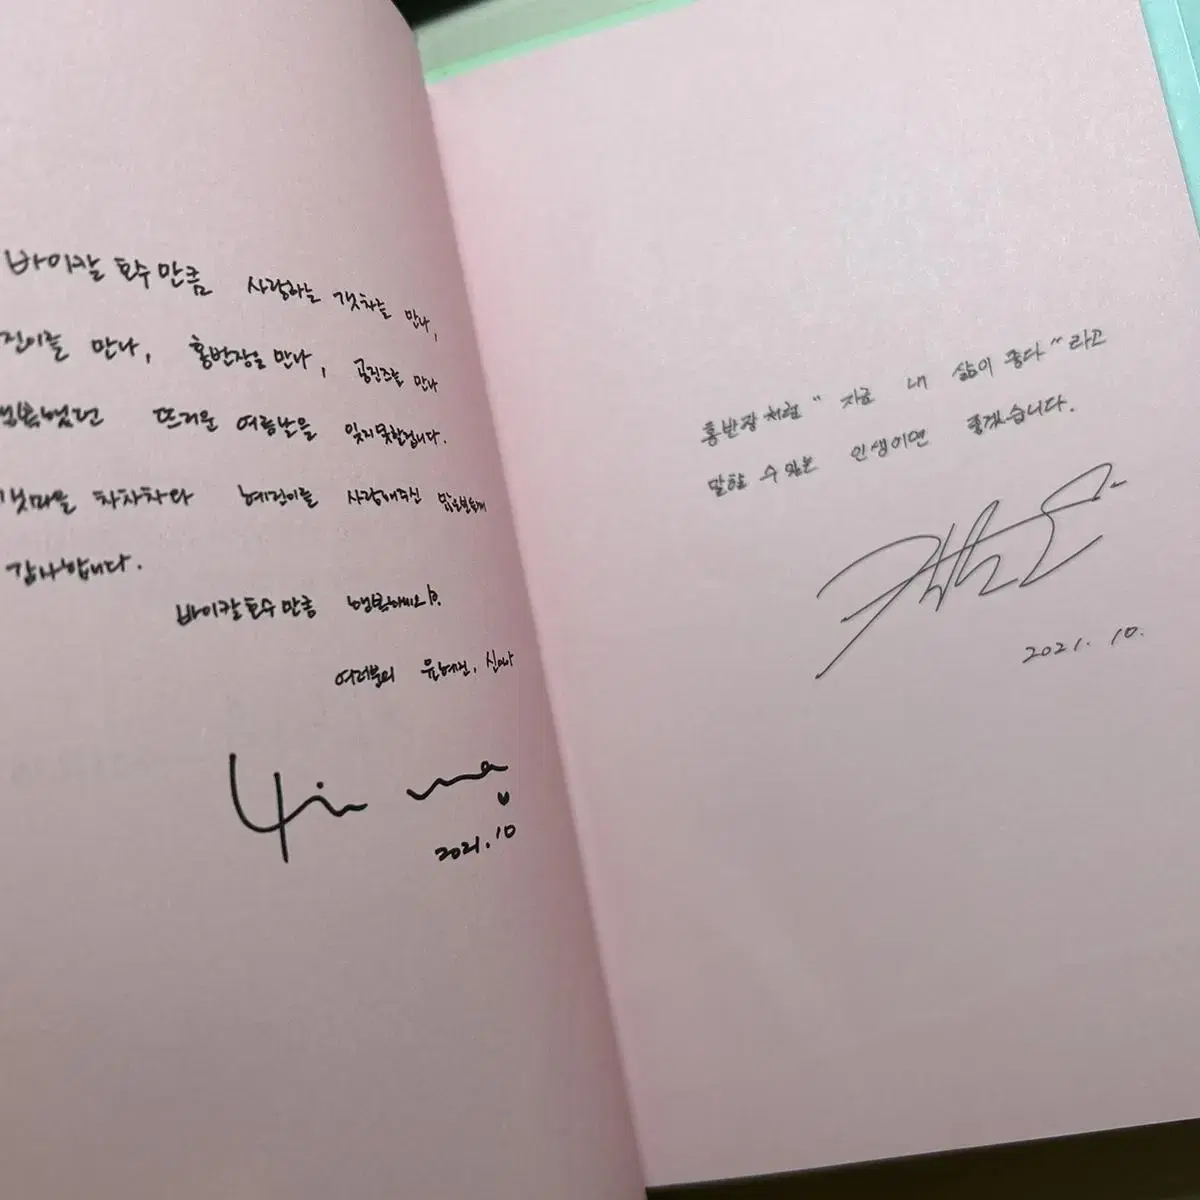 바이칼 호수 만큼 사랑하는 갯차를 만나,
진이를 만나, 홍반장을 만나, 공진즈를 만나
행복했던 뜨거운 여름날을 잊지못할겁니다.
갯마을 차차차와 혜진이를 사랑해주신 많은분들께
감사합니다.
바이칼호수만큼 행복하세요!
여러분의 윤혜진, 신민아
2021.10
홍반장처럼 "지금 내 삶이 좋다"라고
말할 수 있는 인생이면 좋겠습니다.
2021. 10.